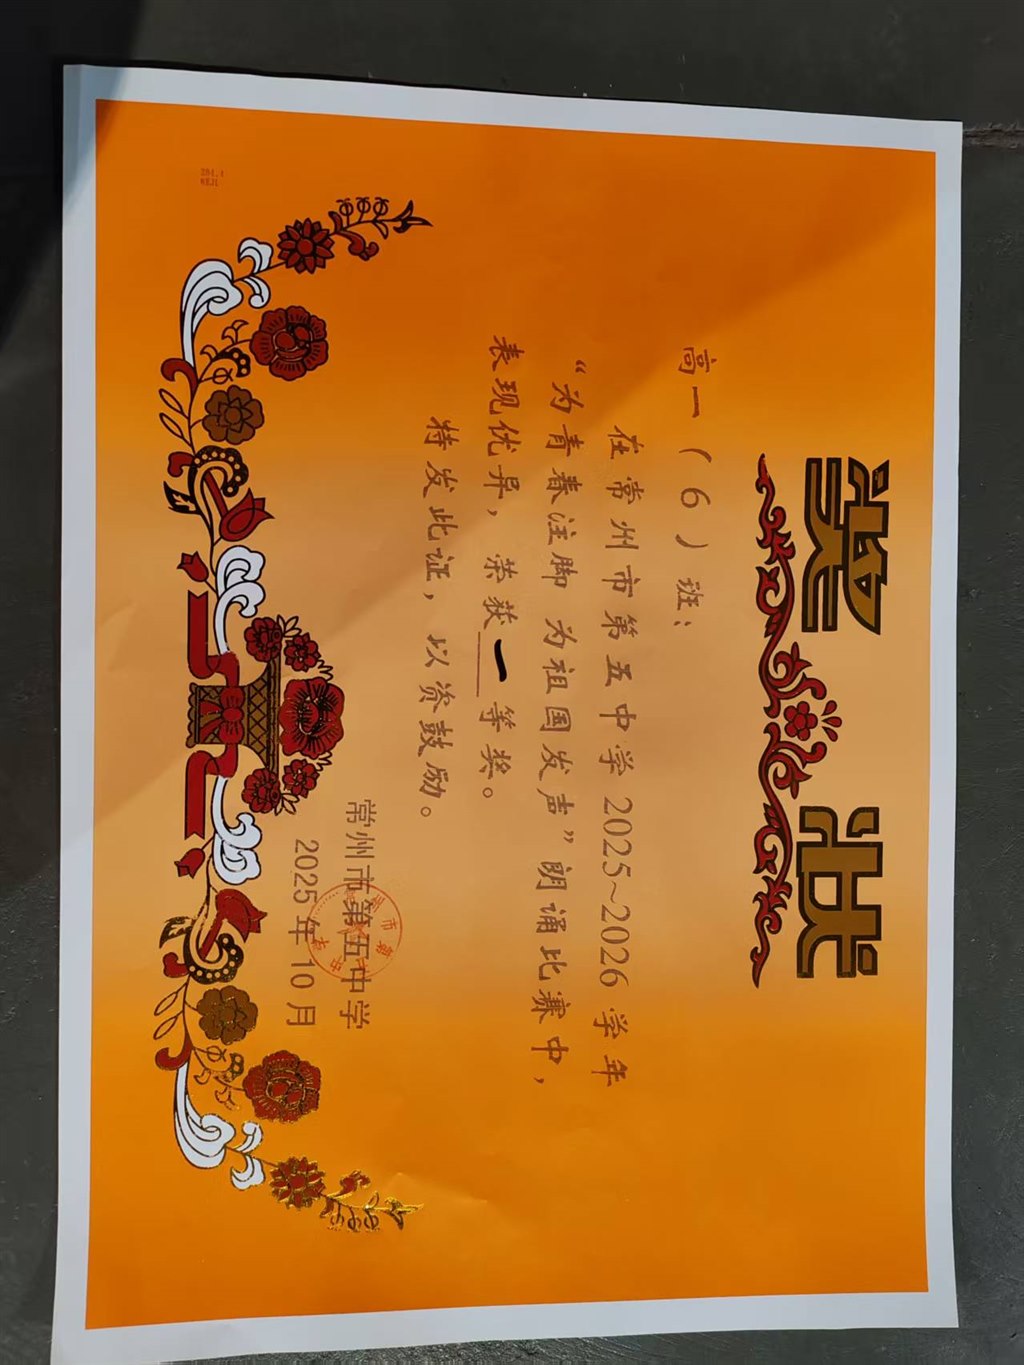 奖状
高一（6）班：
在常州市第五中学 2025~2026 学年
“为青春注脚 为祖国发声”朗诵比赛中，
表现优异，荣获一等奖。
特发此证，以资鼓励。
常州市第五中学
2025年10月